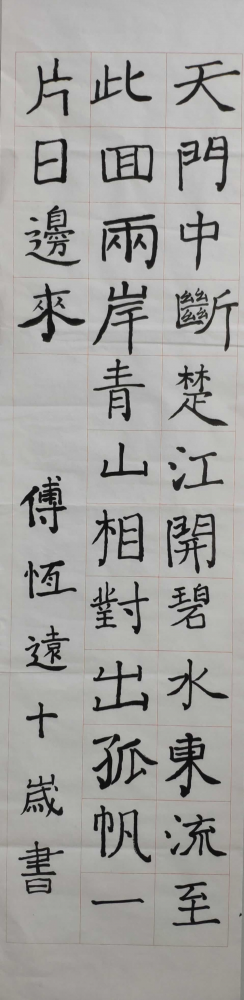 天門中斷楚江開碧水東流至
此回兩岸青山相對出孤帆一
片日邊來
傅恆遠十歲書